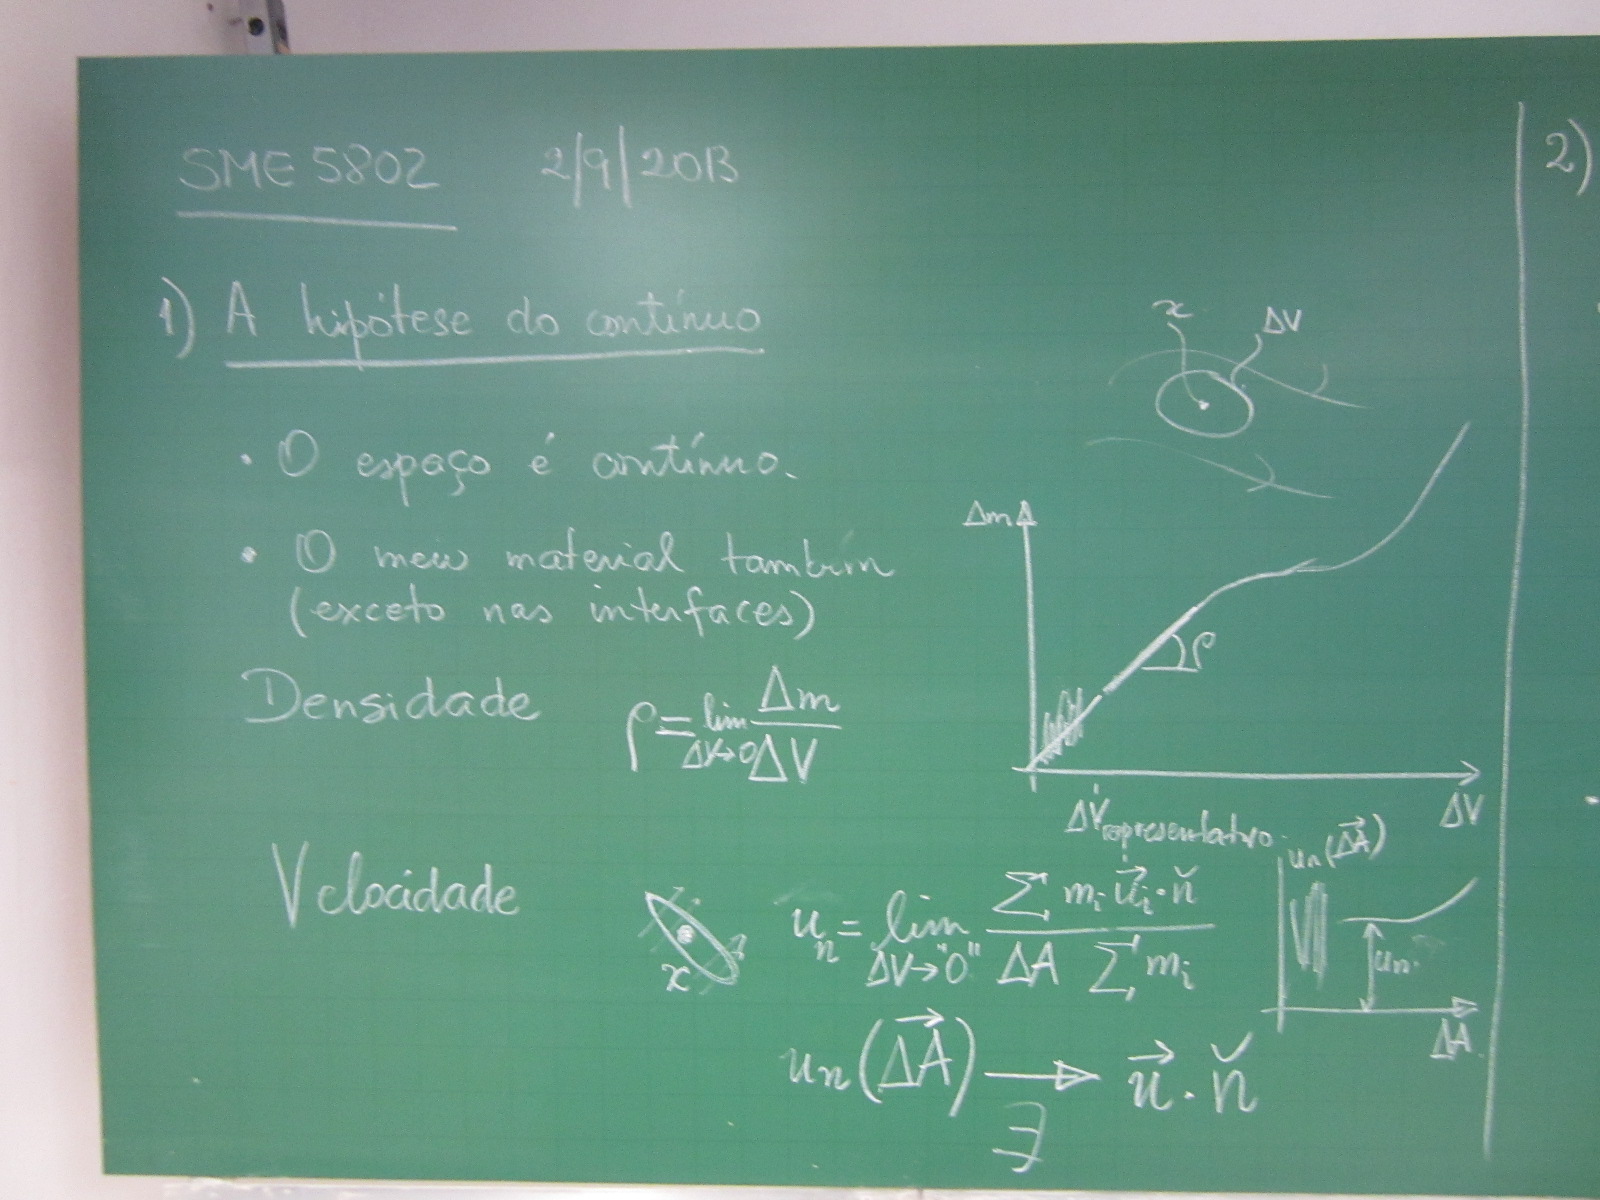 SME 5802 2/9/2013
1) A hipótese do contínuo
• O espaço é contínuo.
• O meu material também
(exceto nas interfaces)
Densidade ρ = lim ΔV→0 Δm/ΔV
x ΔV
Δm
ρ
ΔV
ΔV representativo
Velocidade
x
u_n = lim ΔV→"0" Σ m_i u⃗_i · ň / ΔA Σ m_i
u_n(ΔA⃗)
u_n
ΔA
u_n(ΔA⃗) → u⃗ · ň
∃
2)